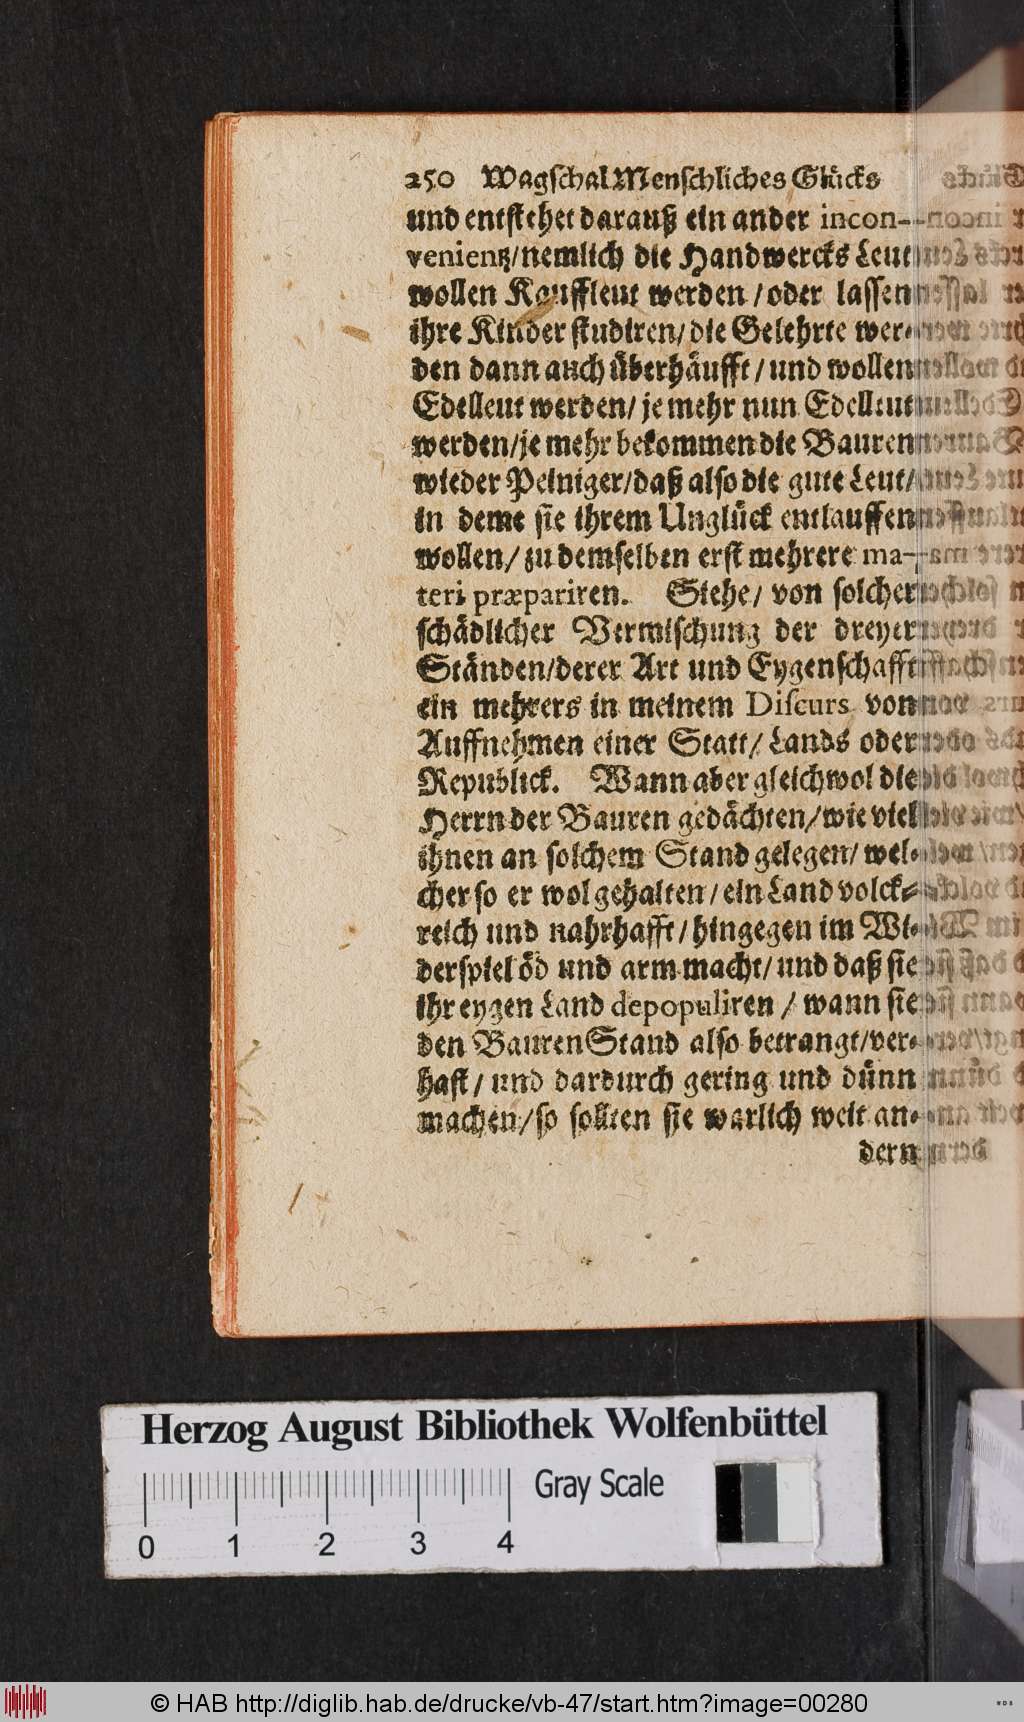 250 Wagschal Menschliches Glücks
und entstehet darauß ein ander incon-
venientz/nemlich die Handwercks Leut
wollen Kauffleut werden / oder lassen
ihre Kinder studiren/ die Gelehrte wer-
den dann auch überhäufft / und wollen
Edelleut werden/ je mehr nun Edelleut
werden/je mehr bekommen die Bauren
wieder Peiniger/daß also die gute Leut/
in deme sie ihrem Unglück entlauffen
wollen/ zu demselben erst mehrere ma-
teri præpariren. Siehe/ von solcher
schädlicher Vermischung der dreyer
Ständen/derer Art und Eygenschafft
ein mehrers in meinem Discurs von
Auffnehmen einer Statt/ Lands oder
Republick. Wann aber gleichwol die
Herrn der Bauren gedächten/wie viel
ihnen an solchem Stand gelegen/ wel-
cher so er wol gehalten / ein Land volck-
reich und nahrhafft/ hingegen im Wi-
derspiel öd und arm macht/ und daß sie
ihr eygen Land depopuliren / wann sie
den Bauren Stand also betrangt/ver-
hast / und dardurch gering und dünn
machen/so sollten sie warlich weit an-
dern
Herzog August Bibliothek Wolfenbüttel
Gray Scale
0 1 2 3 4
© HAB http://diglib.hab.de/drucke/vb-47/start.htm?image=00280